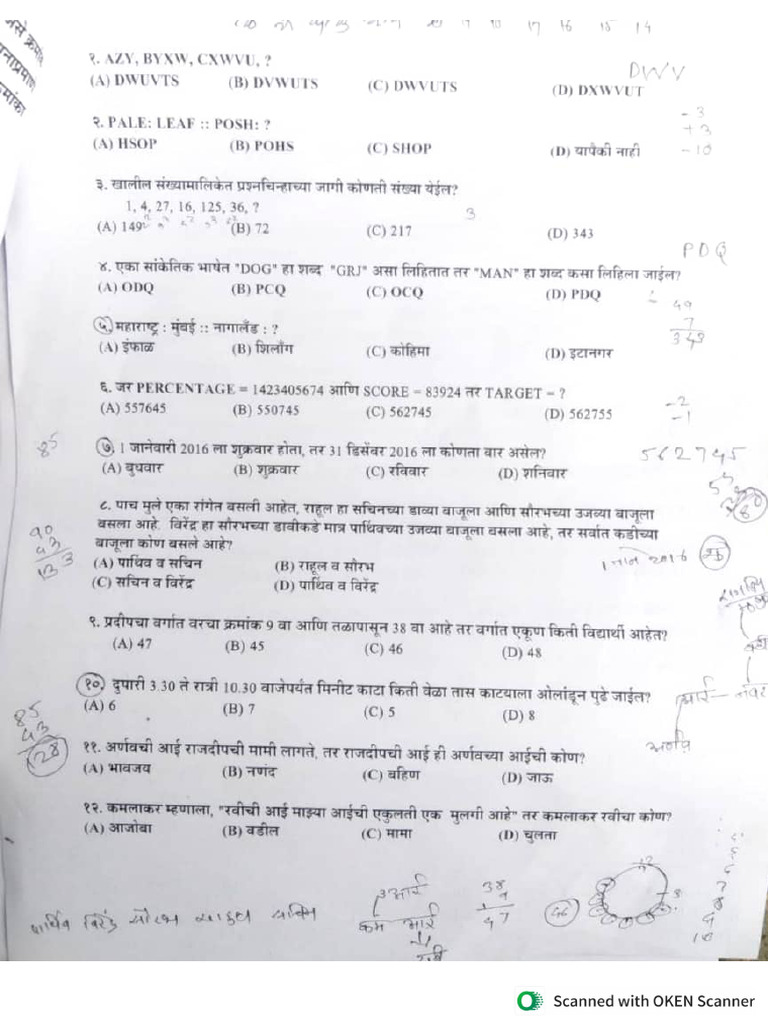 17 16 15 14
१. AZY, BYXW, CXWVU, ?
DWV
(A) DWUVTS (B) DVWUTS (C) DWVUTS (D) DXWVUT
२. PALE: LEAF :: POSH: ?
(A) HSOP (B) POHS (C) SHOP (D) यापैकी नाही
३. खालील संख्यामालिकेत प्रश्नचिन्हाच्या जागी कोणती संख्या येईल?
1, 4, 27, 16, 125, 36, ?
(A) 149 (B) 72 (C) 217 (D) 343
PDQ
४. एका सांकेतिक भाषेत "DOG" हा शब्द "GRJ" असा लिहितात तर "MAN" हा शब्द कसा लिहिला जाईल?
(A) ODQ (B) PCQ (C) OCQ (D) PDQ
49
7
343
५. महाराष्ट्र : मुंबई :: नागालँड : ?
(A) इंफाळ (B) शिलाँग (C) कोहिमा (D) इटानगर
६. जर PERCENTAGE = 1423405674 आणि SCORE = 83924 तर TARGET = ?
(A) 557645 (B) 550745 (C) 562745 (D) 562755
-2
-1
562745
७. 1 जानेवारी 2016 ला शुक्रवार होता, तर 31 डिसेंबर 2016 ला कोणता वार असेल?
(A) बुधवार (B) शुक्रवार (C) रविवार (D) शनिवार
८. पाच मुले एका रांगेत बसली आहेत, राहूल हा सचिनच्या डाव्या बाजूला आणि सौरभच्या उजव्या बाजूला
बसला आहे. विरेंद्र हा सौरभच्या डावीकडे मात्र पार्थिवच्या उजव्या बाजूला बसला आहे, तर सर्वात कडीच्या
बाजूला कोण बसले आहे?
(A) पार्थिव व सचिन (B) राहूल व सौरभ
(C) सचिन व विरेंद्र (D) पार्थिव व विरेंद्र
९. प्रदीपचा वर्गात वरचा क्रमांक 9 वा आणि तळापासून 38 वा आहे तर वर्गात एकूण किती विद्यार्थी आहेत?
(A) 47 (B) 45 (C) 46 (D) 48
१०. दुपारी 3.30 ते रात्री 10.30 वाजेपर्यंत मिनीट काटा किती वेळा तास काटयाला ओलांडून पुढे जाईल?
(A) 6 (B) 7 (C) 5 (D) 8
११. अर्णवची आई राजदीपची मामी लागते, तर राजदीपची आई ही अर्णवच्या आईची कोण?
(A) भावजय (B) नणंद (C) बहिण (D) जाऊ
१२. कमलाकर म्हणाला, "रवीची आई माझ्या आईची एकुलती एक मुलगी आहे" तर कमलाकर रवीचा कोण?
(A) आजोबा (B) वडील (C) मामा (D) चुलता
38
9
47
46
Scanned with OKEN Scanner